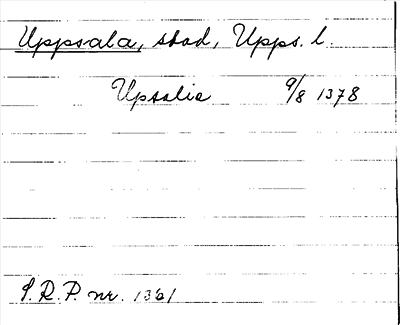 Uppsala, stad, Upps. l.
Upsalie 9/8 1378
S.R.P. nr. 1361